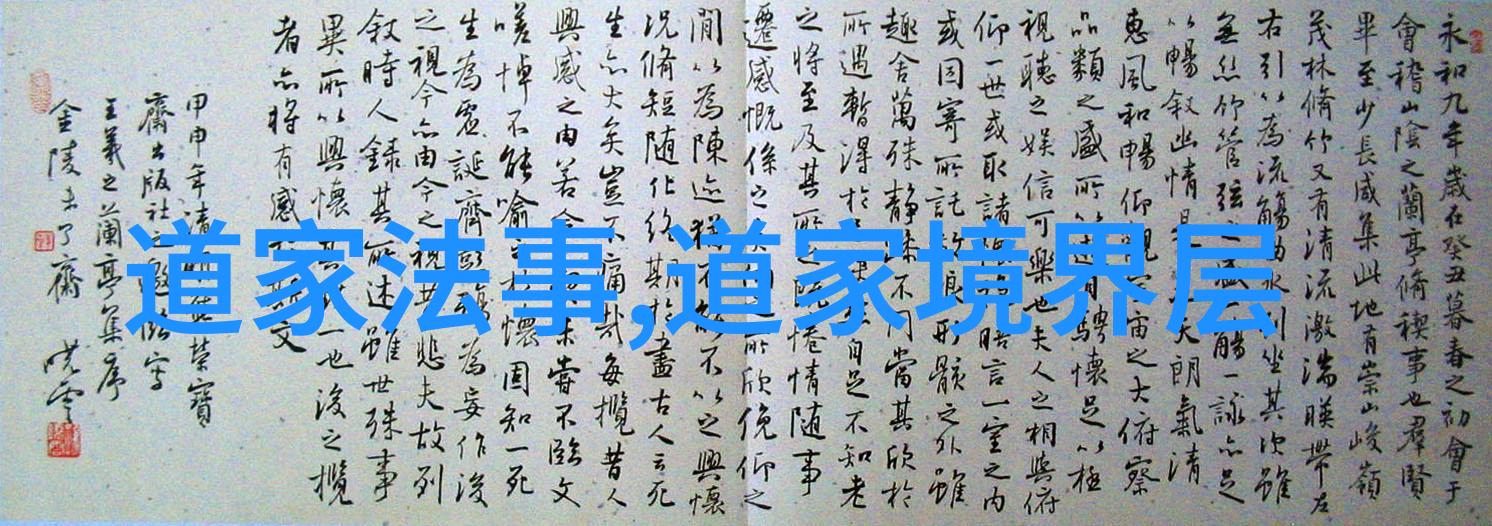 永和九年歲在癸丑暮春之初會于
會稽山陰之蘭亭脩稧事也羣賢
畢至少長咸集此地有崇山峻嶺
茂林脩竹又有清流激湍暎帶左
右引以為流觴曲水列坐其次雖
無絲竹管弦之盛一觴一詠亦足
以暢敘幽情是天朗氣清
惠風和暢仰觀宇宙之大俯察
品類之盛所以騁懷足以極
視聽之娛信可樂也夫人之相與俯
仰一世或取諸懷悟言一室之內
或因寄所託放浪形骸之外雖
趣舍萬殊靜躁不同當其欣於
所遇暫得於快然自足不知老
之將至及其所之既惓情隨事
遷感慨係之向之所欣俛仰之
間以為陳迹猶不能不以之興懷
況脩短隨化終期於盡古人云死
生亦大矣豈不痛哉每攬昔人
興感之由若合未嘗不臨文
嗟悼不能喻之於懷固知一死
生為虛誕齊彭殤為妄作後
之視今亦由今之視昔悲夫故列
敘時人錄其所述雖世殊事
異所以興懷一也後之攬
者亦將有感斯文
甲申年清榮寶
齋出版社之邀寫
王羲之蘭亭集序
金陵未了齋
道家法事,道家境界层